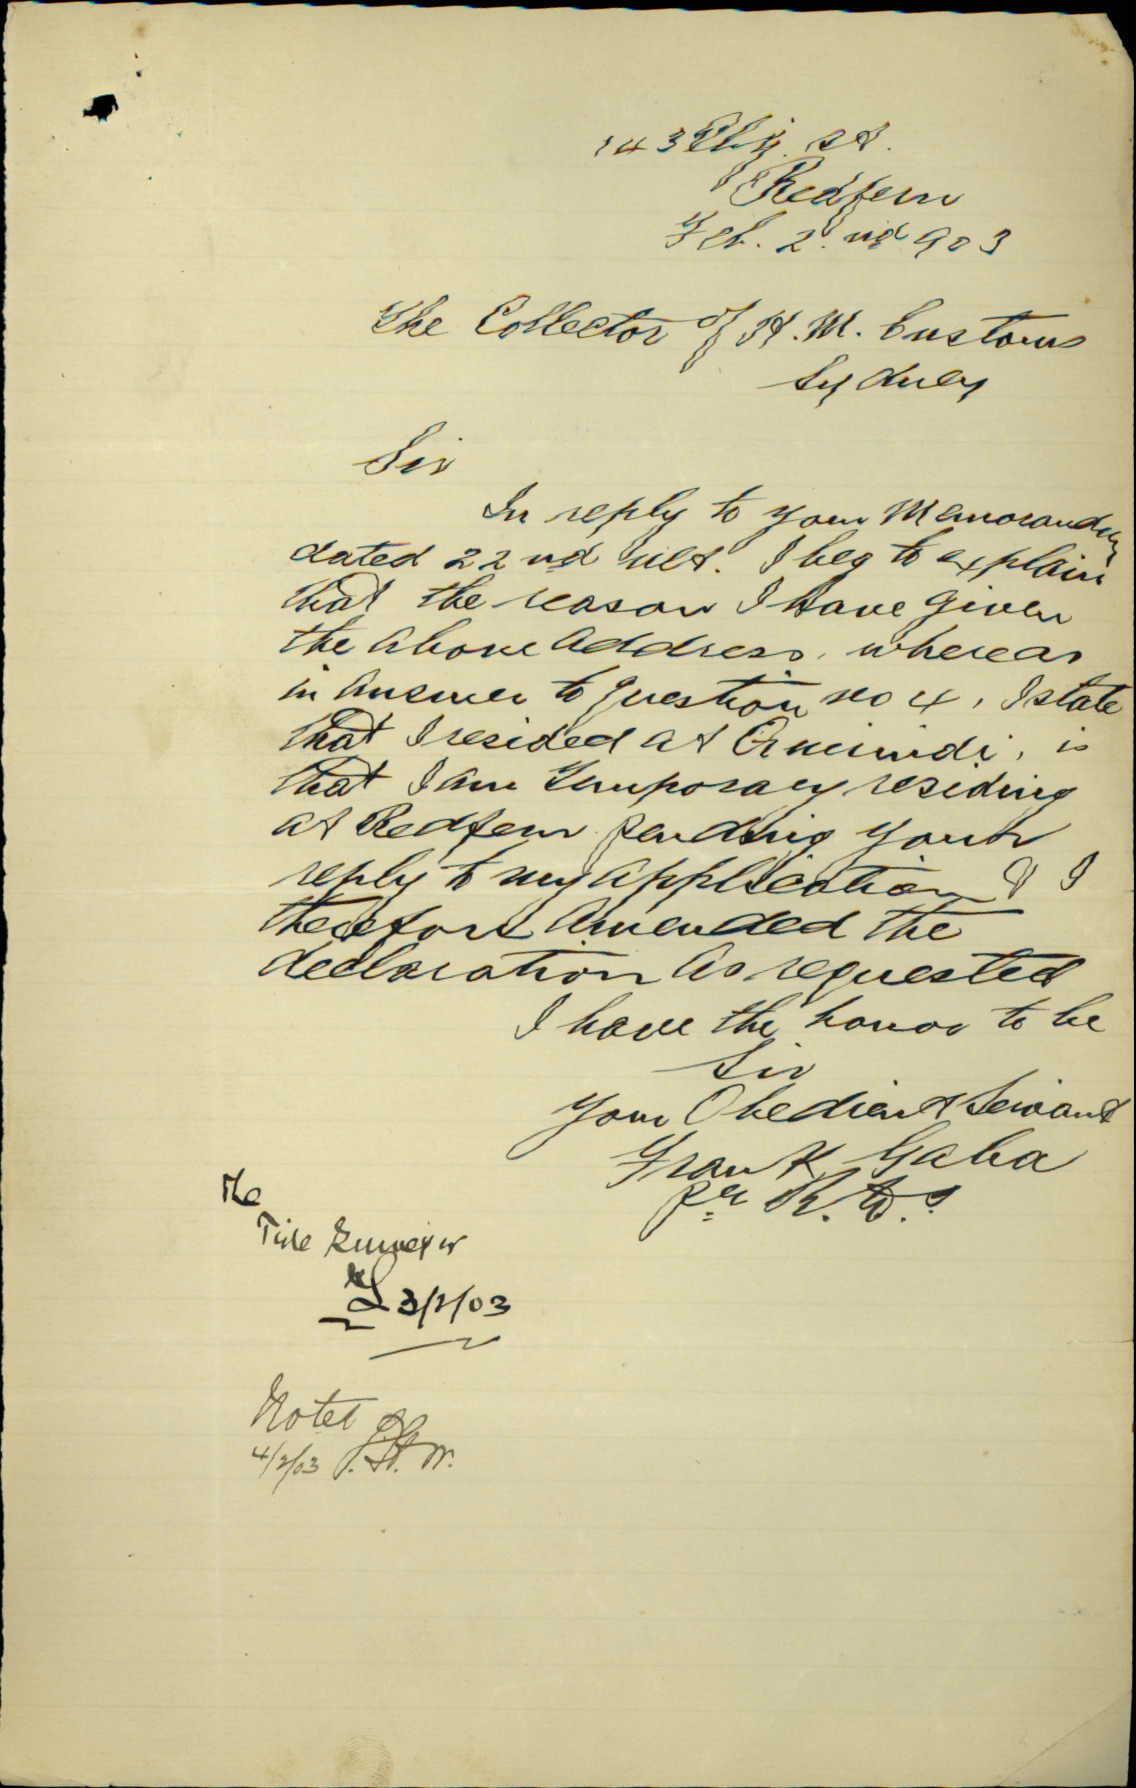 143 Eliz. St.
Redfern
Feb. 2nd 903
The Collector of H.M. Customs
Sydney
Sir
In reply to your Memorandum
dated 22nd ult. I beg to explain
that the reason I have given
the above address, whereas
in answer to question no 4, I state
that I resided at, is
that I am temporary residing
at Redfern pending your
reply to my application & I
therefore amended the
declaration as requested
I have the honor to be
Sir
Your Obedient Servant
Frank Gaba
per R. W.
The
Tide Surveyor
3/2/03
Noted
4/2/03 J. H. W.